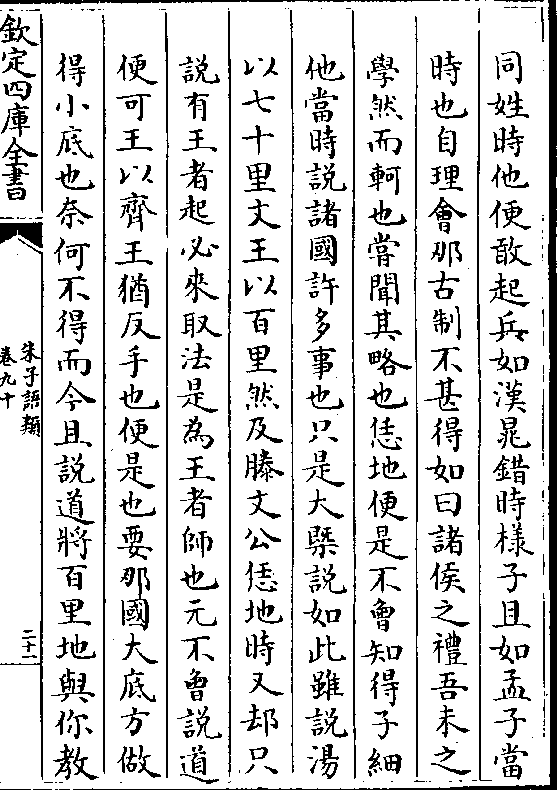 同姓時他便敢起兵如漢晁錯時様子且如孟子當
時也自理會那古制不甚得如曰諸侯之禮吾未之
學然而軻也嘗聞其略也恁地便是不曾知得子細
他當時説諸國許多事也只是大槩説如此雖説湯
以七十里文王以百里然及滕文公恁地時又却只
説有王者起必來取法是為王者師也元不曾説道
便可王以齊王猶反手也便是也要那國大底方做
得小底也奈何不得而今且説道將百里地與你教
欽定四庫全書
朱子語類
卷九十
二十一